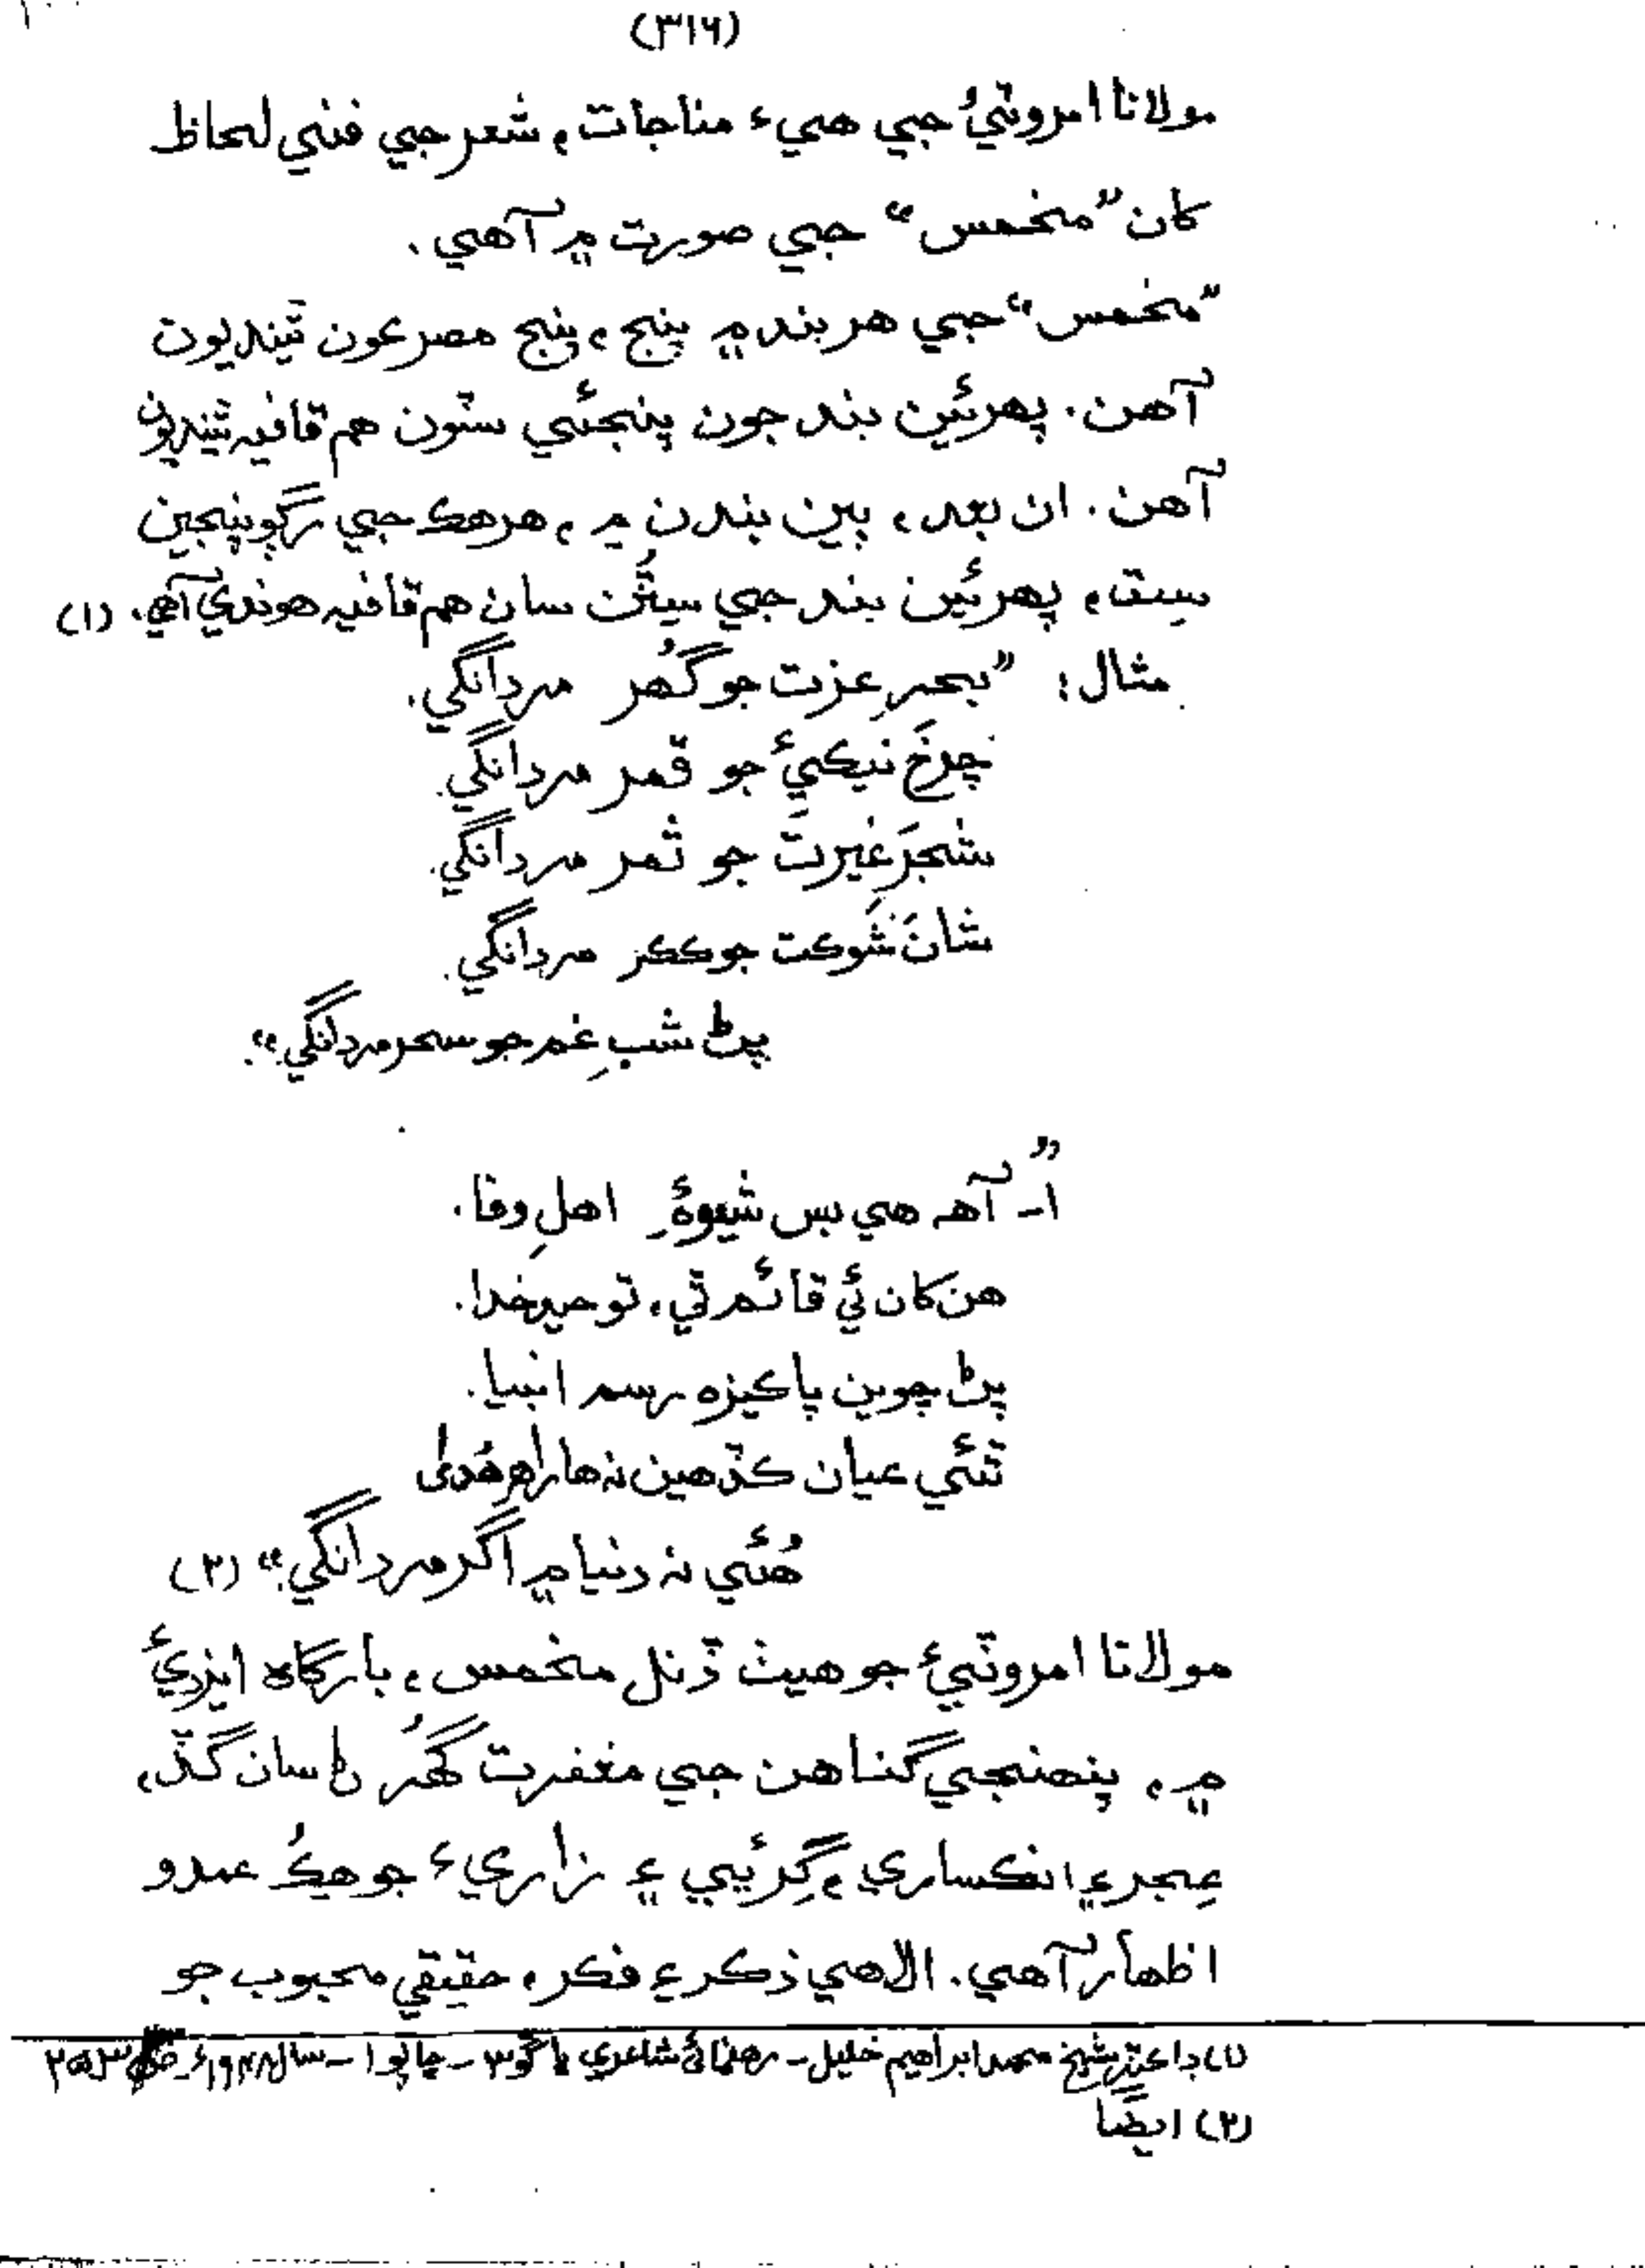 (٣١٦)
مولانا امروٽيءَ جي هيءَ مناجات، شعر جي فني لحاظ
کان ”مخمس“ جي صورت ۾ آهي.
”مخمس“ جي هر بند ۾ پنج، پنج مصرعون ٿينديون
آهن. پهرئين بند جون پنجئي سٽون هم قافيہ ٿينديون
آهن. ان بعد، ٻين بندن ۾، هر هڪ جي رڳو پنجين
سِٽ، پهرئين بند جي سِٽُن سان هم قافيہ هوندي آهي. (١)
مثال: ”بحرِ عزت جو گُهر مردانگي.
چرخِ نيڪيءَ جو قمر مردانگي.
شجرِ غيرت جو ثمر مردانگي.
شانَ شوڪت جو ڪڪر مردانگي.
پڻ شبِ غم جو سحر مردانگي.“
”١ـ آهه هي بس شيوۂِ اهلِ وفا.
هن کان ئي قائم ٿي، توحيدِ خدا.
پڻ چوين پاڪيزه رسم انبيا.
ٿئي عيان ڪڏهين نہ ها راهِ هُدىٰ
هُئي نہ دنيا ۾ اگر مردانگي.“ (٢)
مولانا امروٽيءَ جو هيٺ ڏنل مخمس، بارگاهه ايزديءَ
۾، پنهنجي گناهن جي مغفرت گُهرڻ سان گڏ،
عِجز ۽ انڪساري، گِرئيي ۽ زاريءَ جو هڪُ عمدو
اظهار آهي. الاهي ذڪر ۽ فڪر، حقيقي محبوب جو
(١) ڊاڪٽر شيخ محمد ابراهيم خليل ـ رهنمائي شاعري ڀاڱو ٣ ـ ڇاپو ١ ـ سال
(٢) ايضًا